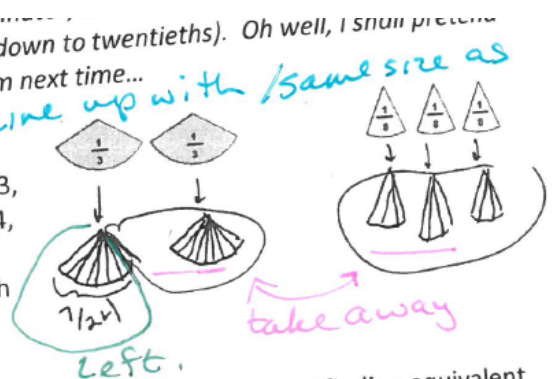 down to twentieths). Oh well, I shall pretend
m next time...
Line up with / same size as
1/3 1/3 1/8 1/8 1/8
3,
4,
h
7/24
take away
Left.
equivalent